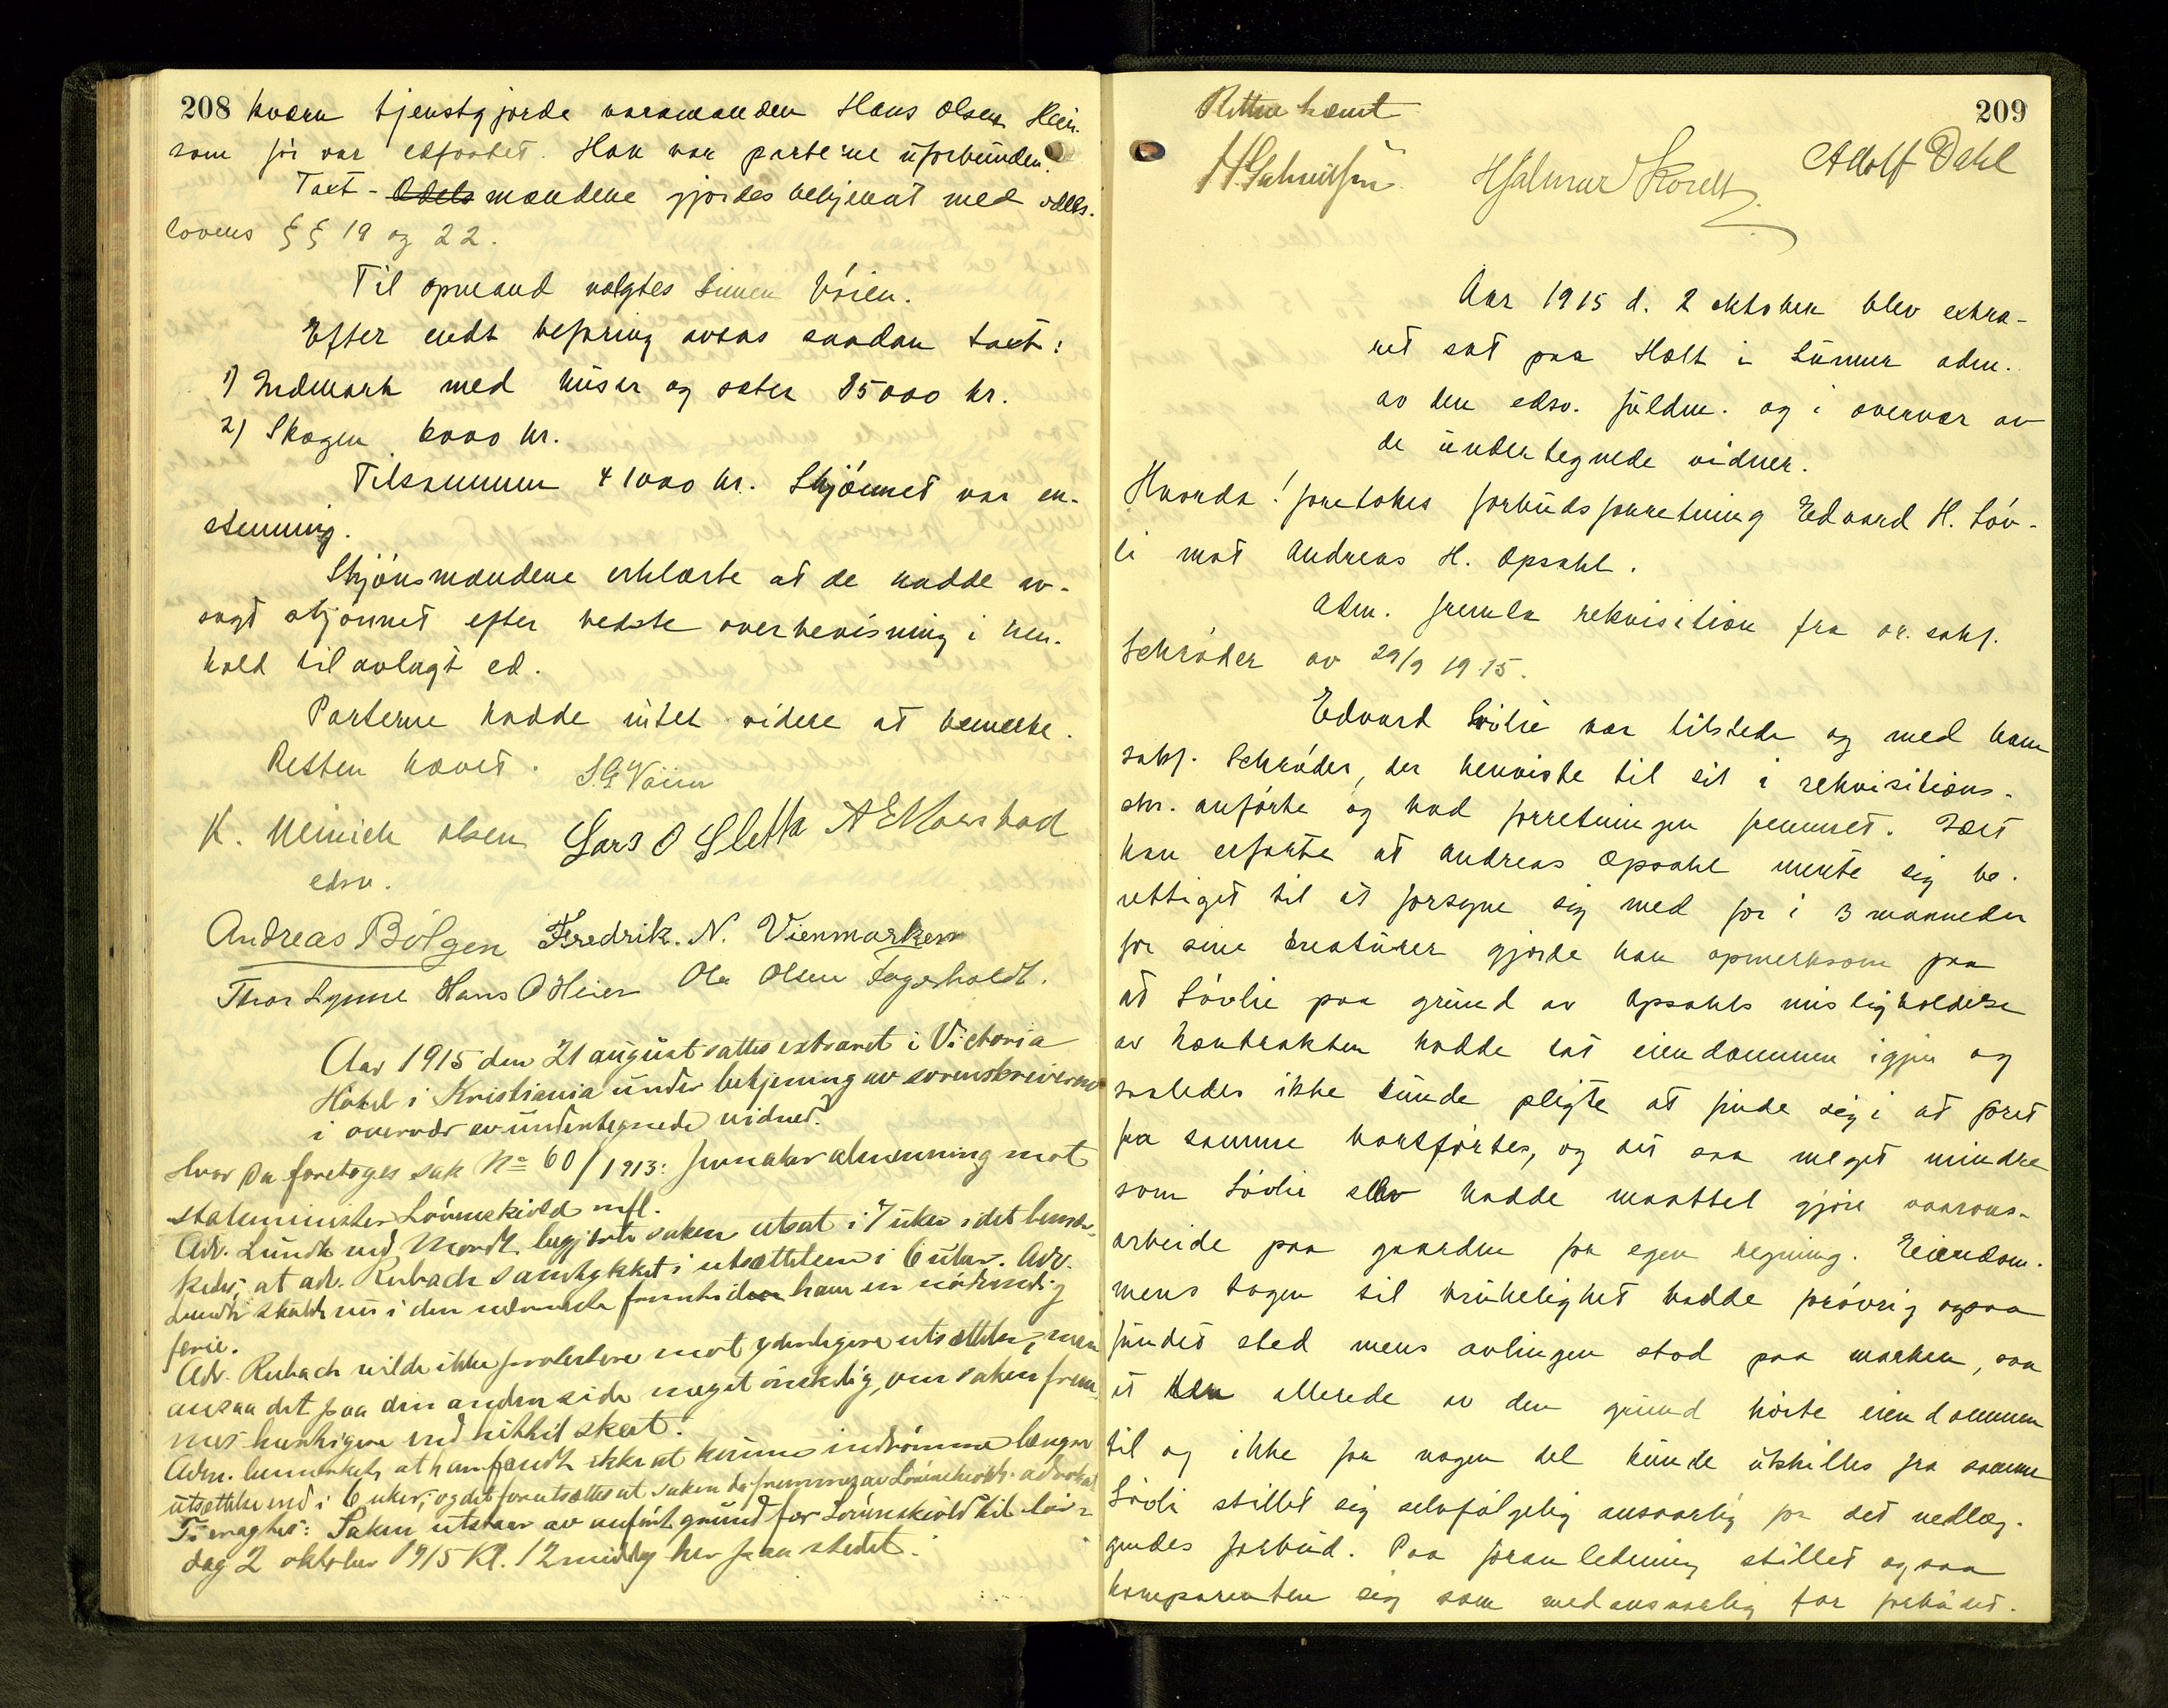 208 hværn tjenstgjorde varamanden Hans Olsen Heier
som før var edfæstet. Han var parterne uforbunden.
Taxt-Odelsmændene gjordes bekjendt med odels-
lovens §§ 19 og 22.
Til opmand valgtes Simen Vøien.
Efter endt befaring avgas saadan taxt:
1) Indmark med huser og sæter 35000 kr.
2) Skogen 6000 kr.
Tilsammen 41000 kr. Skjønnet var en-
stemmig.
Skjønsmændene erklærte at de hadde av-
sagt skjønnet efter bedste overbevisning i hen-
hold til avlagt ed.
Parterne hadde intet videre at bemerke.
Retten hævet. S. G. Vøien
K. Meinich Olsen Lars O Sletta A E Morstad
edsv.
Andreas Bølgen Fredrik. N. Vienmarken
Thor Lynne Hans O Heier Ole Olsen Fagerholdt.
Aar 1915 den 21 august sattes extraret i Victoria
Hotel i Kristiania under betjening av sorenskriveren
i overvær av undertegnede vidner.
Hvor da foretoges sak No 60/1913: Jevnaker almenning mot
statsminister Løvenskiold mfl.
Adv. Lunde ved Mordt begjærte saken utsat i 7 uker idet bemær-
kedes, at adv. Rubach samtykket i utsættelsen i 6 uker. Adv.
Lunde skulde nu i den nærmeste fremtid ha en nødvendig
ferie.
Adv. Rubach vilde ikke protestere mot yderligere utsættelse, men
ansaa det paa den anden side meget ønskelig, om saken frem-
mes hurtigere end hittil skeet.
Adm. bemærket at han fandt ikke at kunne indrømme længer
utsættelse end i 6 uker, og det forutsættes at saken da fremmes av Løvenskiolds advokat
Ti eragtes: Saken utstaar av anført grund for Løvenskiold til lør-
dag 2 oktober 1915 Kl. 12 middag her paa stedet.
Retten hævet 209
Hjalmar Skoell Adolf Dahl
Aar 1915 d. 2 oktober blev extra-
ret sat paa Holt i Lunner adm.
av den edsv. fuldm. og i overvær av
de undertegnede vidner.
Hvorda! foretokes forbudsforretning Edvard H. Løv-
li mot Andreas H. Opsahl.
Adm. fremla rekvisition fra or. sakf.
Schrøder av 29/9 1915.
Edvard Løvlie var tilstede og med ham
sakf. Schrøder, der henviste til sit i rekvisitions-
skr. anførte og bad forretningen fremmet. Idet
han erfarte at Andreas Opsahl mente sig be-
rettiget til at forsyne sig med for i 3 maaneder
for sine kreaturer gjorde han opmerksom paa
at Løvlie paa grund av Opsahls misligholdelse
av kontrakten hadde tat eiendommen igjen og
saaledes ikke kunde pligte at finde sig i at foret
fra samme bortførtes, og det saa meget mindre
som Løvlie selv hadde maattet gjøre vaarons-
arbeide paa gaarden for egen regning. Eiendom-
mens tagen til brukelighet hadde forøvrig ogsaa
fundet sted mens avlingen stod paa marken, saa
at den allerede av den grund hørte eiendommen
til og ikke for nogen del kunde utskilles fra samme
Løvli stillet sig selvfølgelig ansvarlig for det nedlæg-
gendes forbud. Paa foranledning stillet ogsaa
komparenten sig som medansvarlig for forbudet.